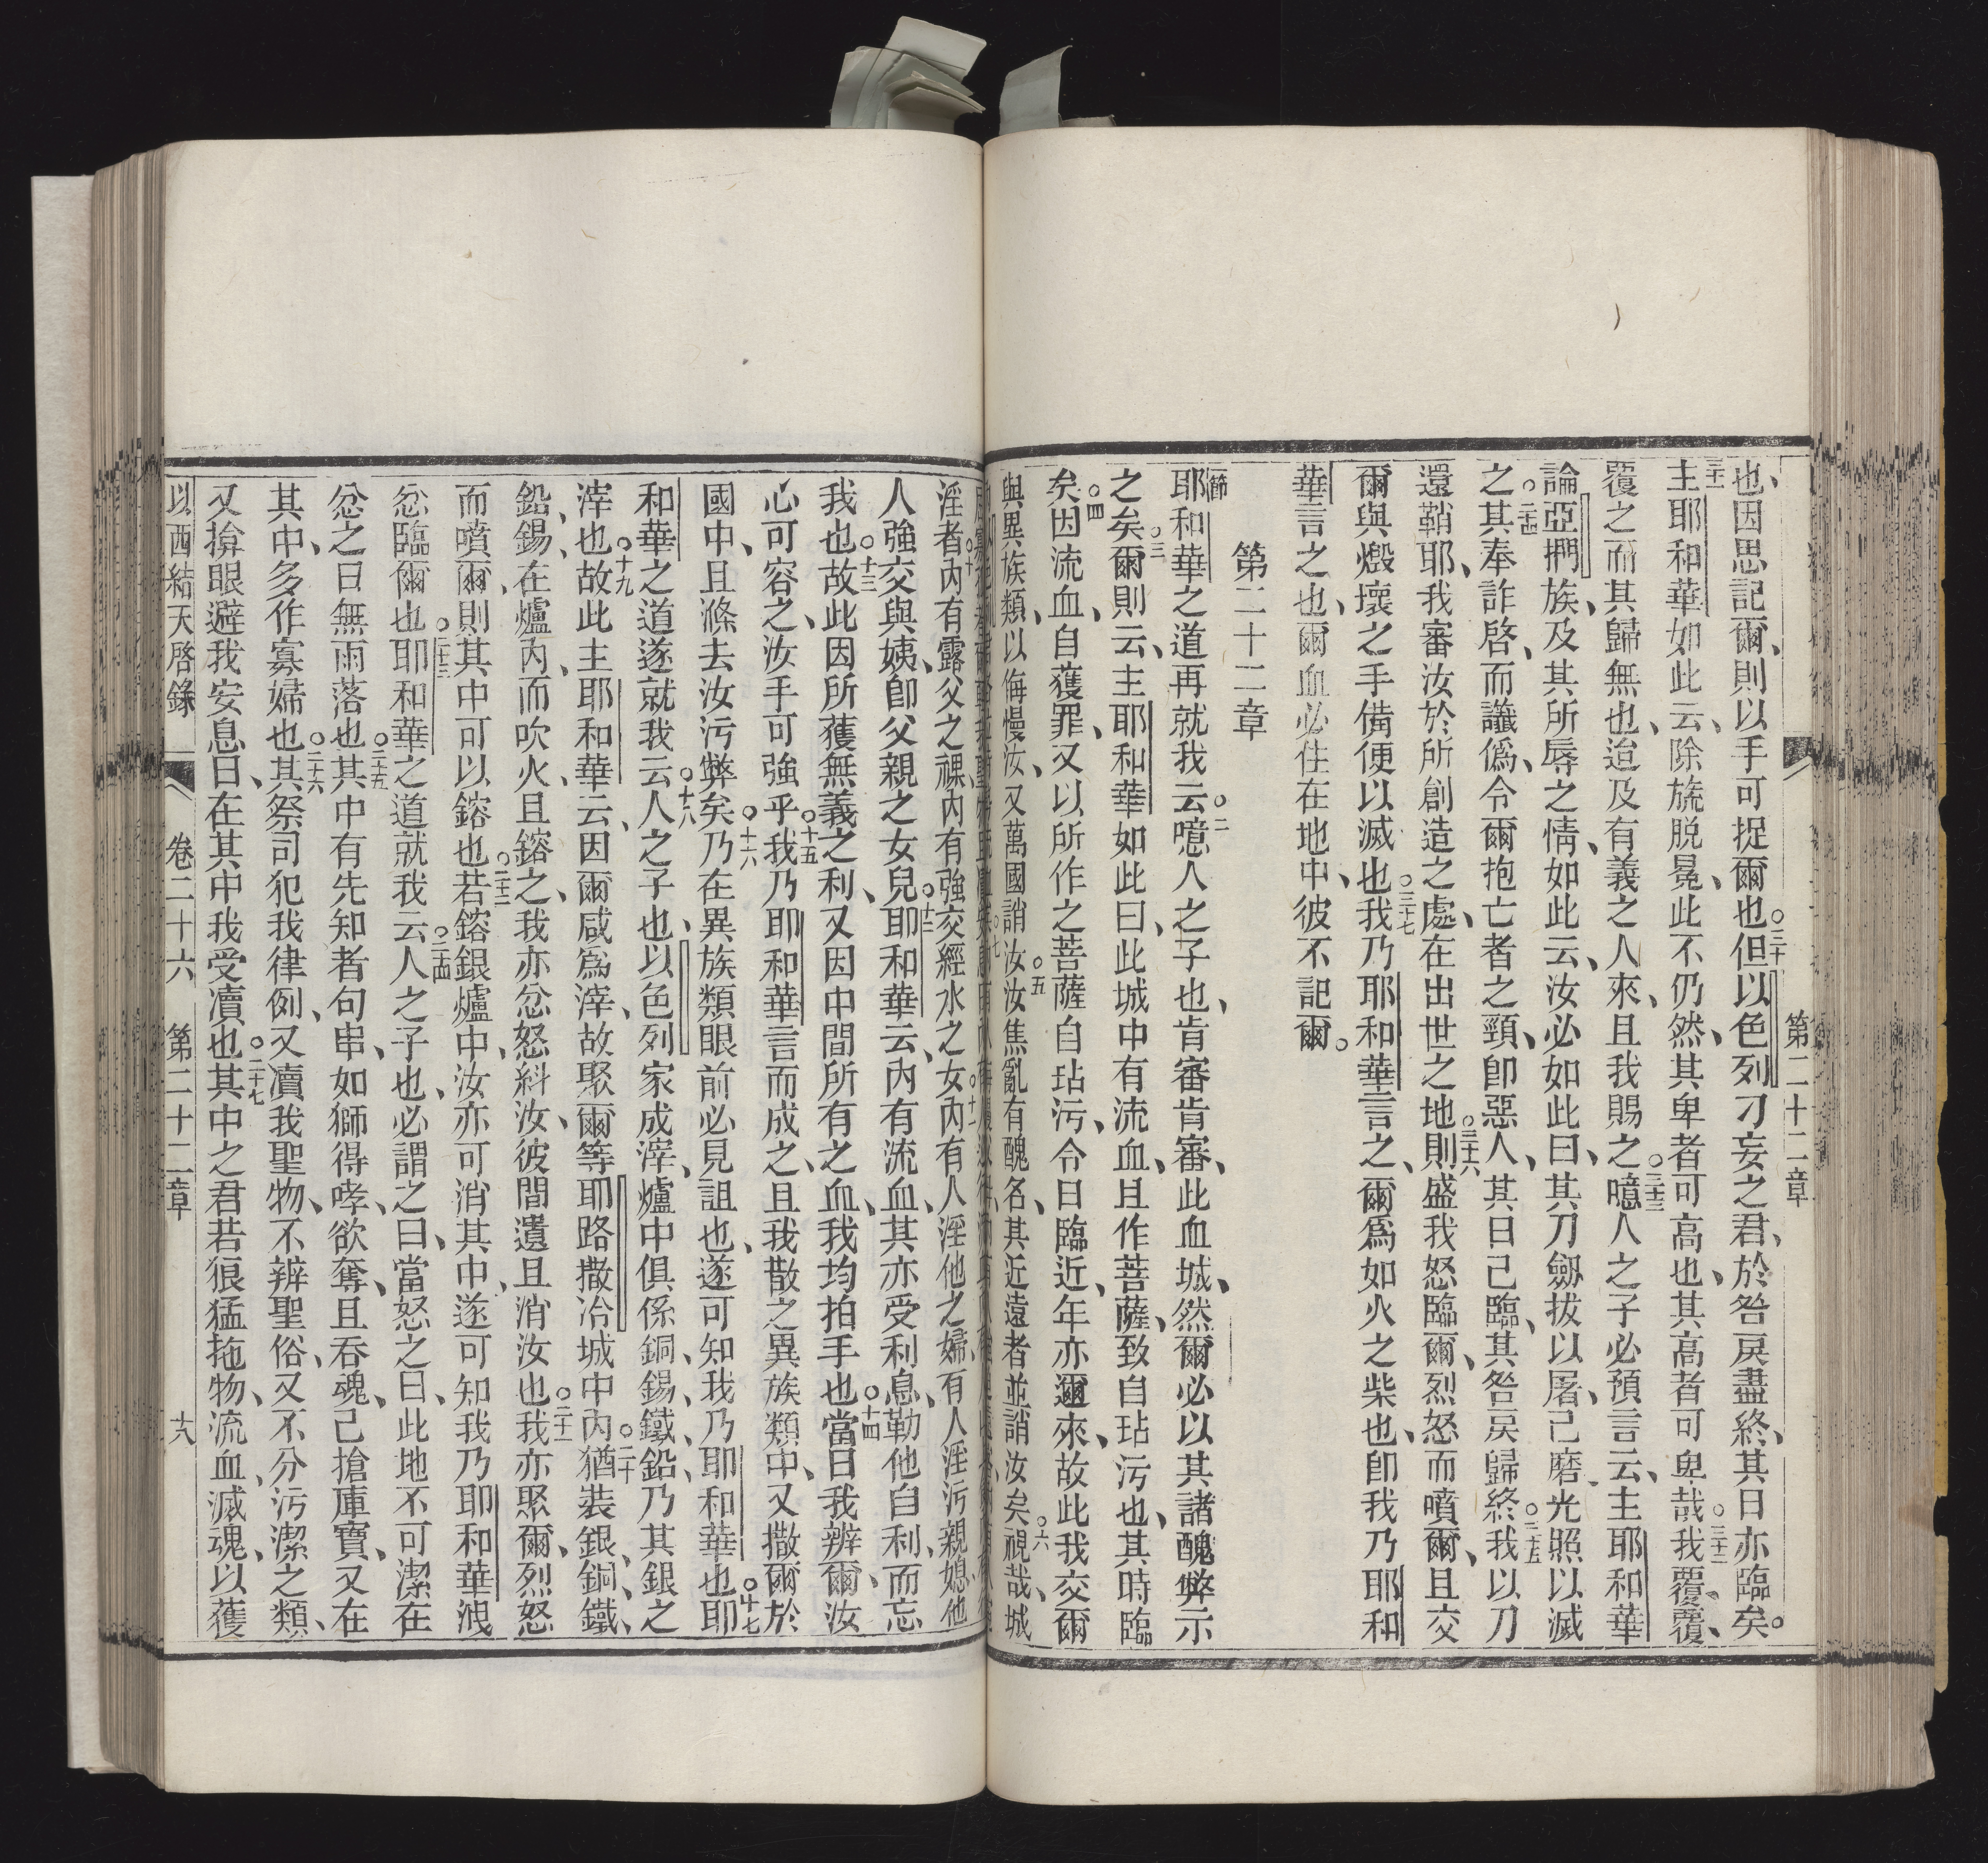 第二十二章
也、因思記爾、則以手可捉爾也○三十但以色列刁妄之君、於咎戾盡終、其日亦臨矣。
三十一主耶和華如此云、除旒脫冕、此不仍然、其卑者可高也、其高者可卑哉○三十二我覆、覆、
覆之而其歸無也、迨及有義之人來、且我賜之○三十三噫人之子必預言云、主耶和華
論亞捫族、及其所辱之情、如此云、汝必如此曰、其刀劔拔以屠、已磨光照以滅
之○三十四其奉詐啓、而讖僞、令爾抱亡者之頸、卽惡人、其日已臨、其咎戾歸終○三十五我以刀
還鞘耶、我審汝於所創造之處、在出世之地○三十六則盛我怒臨爾、烈怒而噴爾、且交
爾與燬壞之手備便以滅也○三十七我乃耶和華言之、爾爲如火之柴也、卽我乃耶和
華言之也、爾血必住在地中、彼不記爾。
第二十二章
一節耶和華之道再就我云○二噫人之子也、肯審肯審、此血城、然爾必以其諸醜弊示
之矣○三爾則云、主耶和華如此曰、此城中有流血、且作菩薩、致自玷污也、其時臨
矣○四因流血、自獲罪、又以所作之菩薩自玷污、令日臨近、年亦邇來、故此我交爾
與異族類、以侮慢汝、又萬國誚汝○五汝焦亂有醜名、其近遠者並誚汝矣○六視哉、城
淫者○十內有露父之裸內有強交經水之女○十一內有人淫他之婦、有人淫污親媳、他
人強交與姨、卽父親之女兒○十二耶和華云、內有流血、其亦受利息、勒他自利、而忘
我也○十三故此因所獲無義之利、又因中間所有之血、我均拍手也○十四當日我辨爾、汝
心可容之、汝手可強乎○十五我乃耶和華言而成之、且我散之異族類中、又撒爾於
國中、且滌去汝污弊矣○十六乃在異族類眼前必見詛也、遂可知我乃耶和華也○十七耶
和華之道遂就我云○十八人之子也、以色列家成滓、爐中俱係銅、錫、鐵、鉛、乃其銀之
滓也○十九故此主耶和華云、因爾咸爲滓、故聚爾等耶路撒冶城中○二十內猶裝銀、銅、鐵、
鉛、錫、在爐內、而吹火、且鎔之、我亦忿怒糾汝、彼間遺且消汝也○二十一我亦聚爾、烈怒
而噴爾、則其中可以鎔也○二十二若鎔銀爐中、汝亦可消其中、遂可知我乃耶和華洩
忿臨爾也○二十三耶和華之道就我云○二十四人之子也、必謂之曰、當怒之日、此地不可潔在
忿之日無雨落也○二十五其中有先知者句串、如獅得哮、欲奪、且吞魂、已搶庫寶、又在
其中、多作寡婦也○二十六其祭司犯我律例、又瀆我聖物、不辨聖俗、又不分污潔之類、
又揜眼避我安息日、在其中我受瀆也○二十七其中之君若狼猛拖物、流血、滅魂、以獲
以西結天啓錄　卷二十六　第二十二章　六